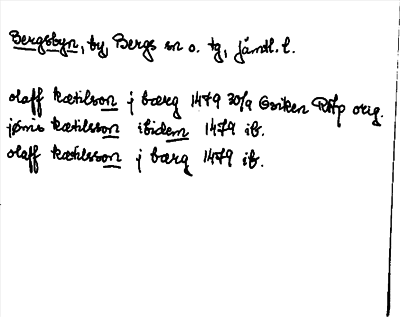 Bergsbyn, by, Bergs sn o. tg, Jämtl. l.
olaff kætilson j bærg 1479 30/9 Gsiken RAp orig.
jønis kætilsson ibidem 1479 ib.
olaff kætilsson j bærg 1479 ib.